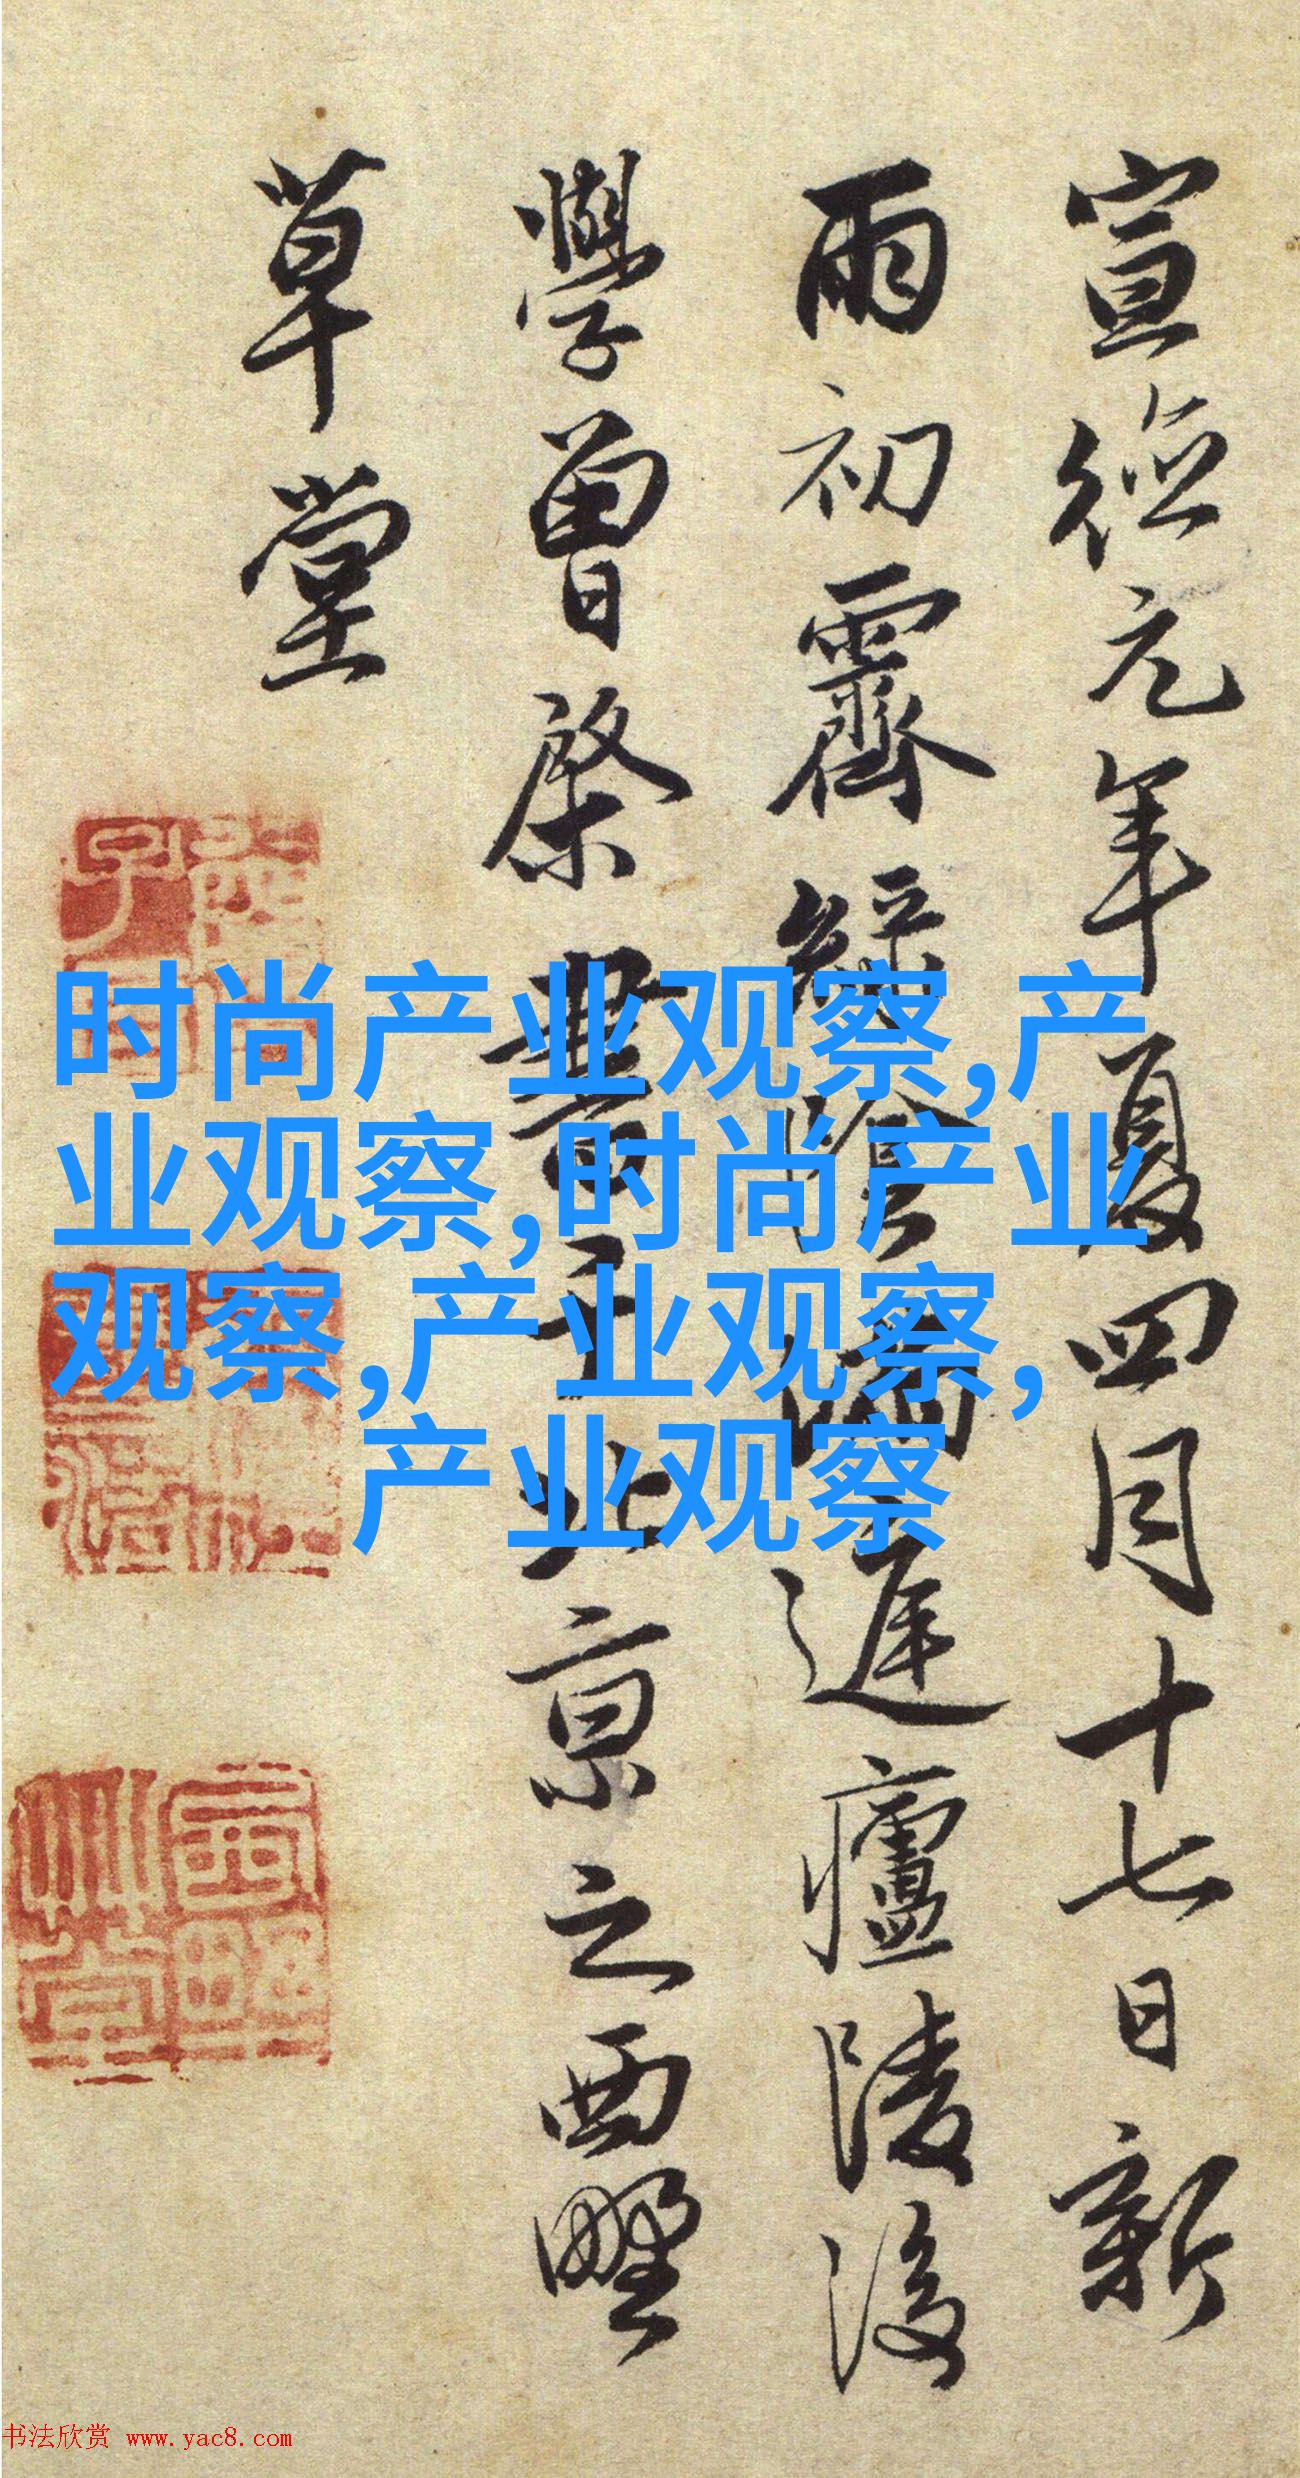 宣德元年夏四月十七日新
雨初霽解陰陽遲廬陵後
學曾棨書于北京之西墅
草堂
时尚产业观察,产
业观察,时尚产业
观察,产业观察,
产业观察
书法欣赏 www.yac8.com